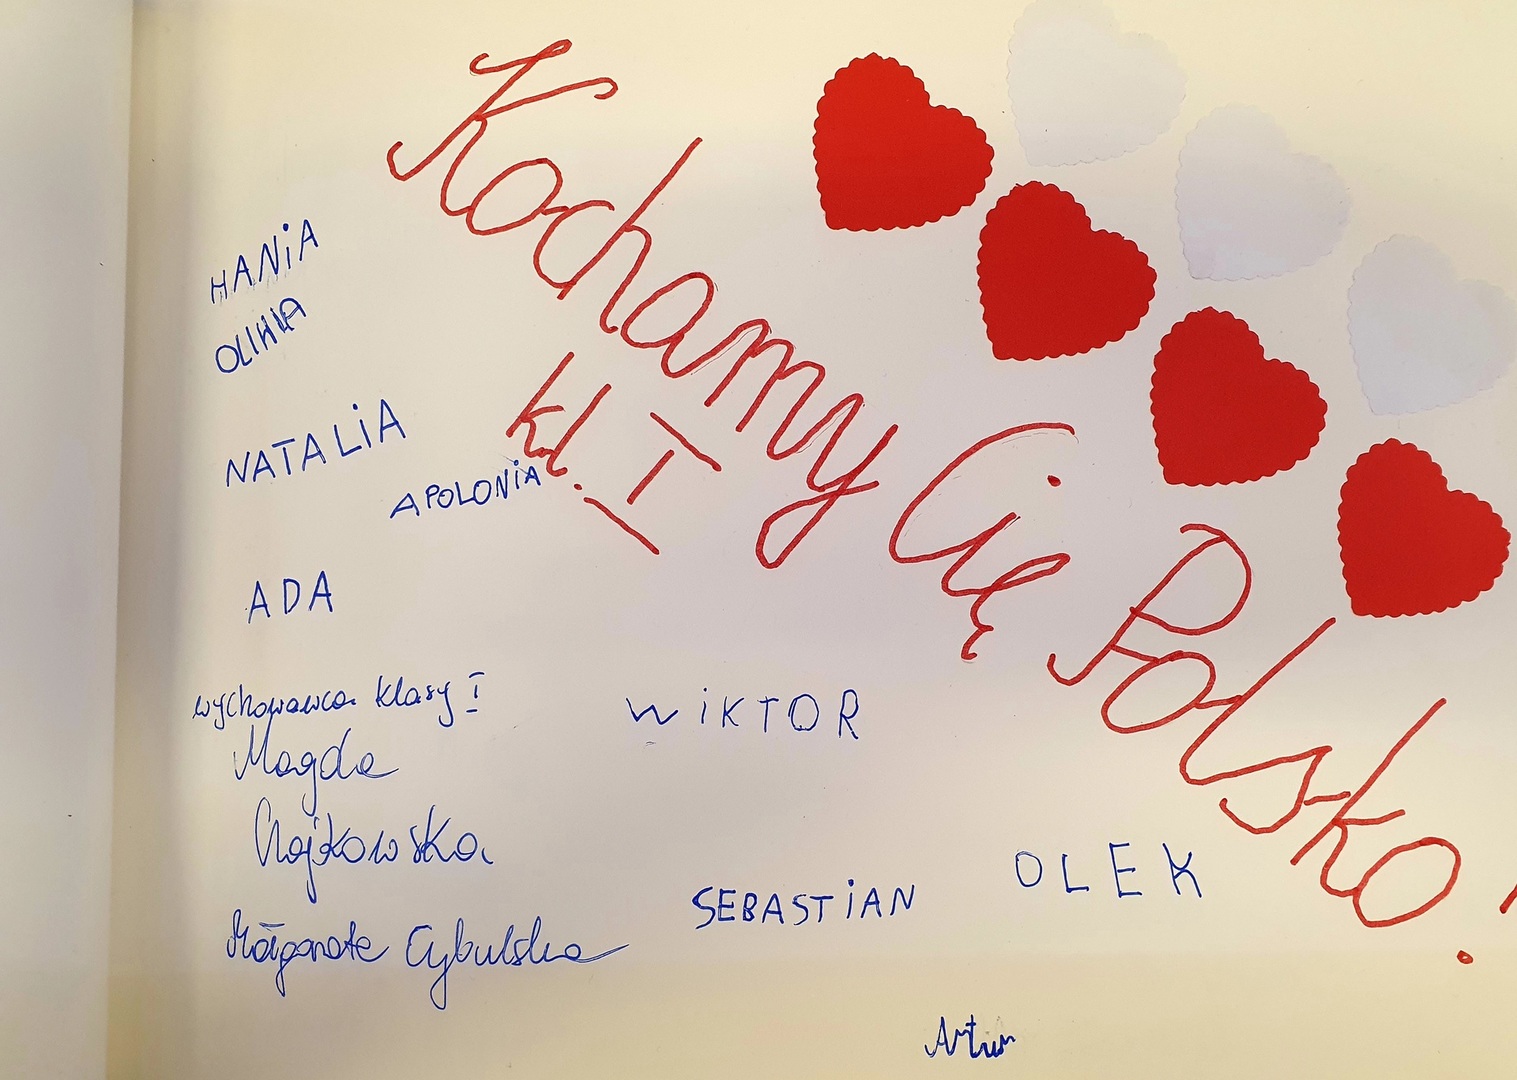 Kochamy Cię Polsko!
kl. I
HANiA
OLIWIA
NATALiA
APOLONiA
ADA
wychowawca klasy I
Magda
WiKTOR
SEBASTiAN
OLEK
Małgorzata Cybulska
Artur